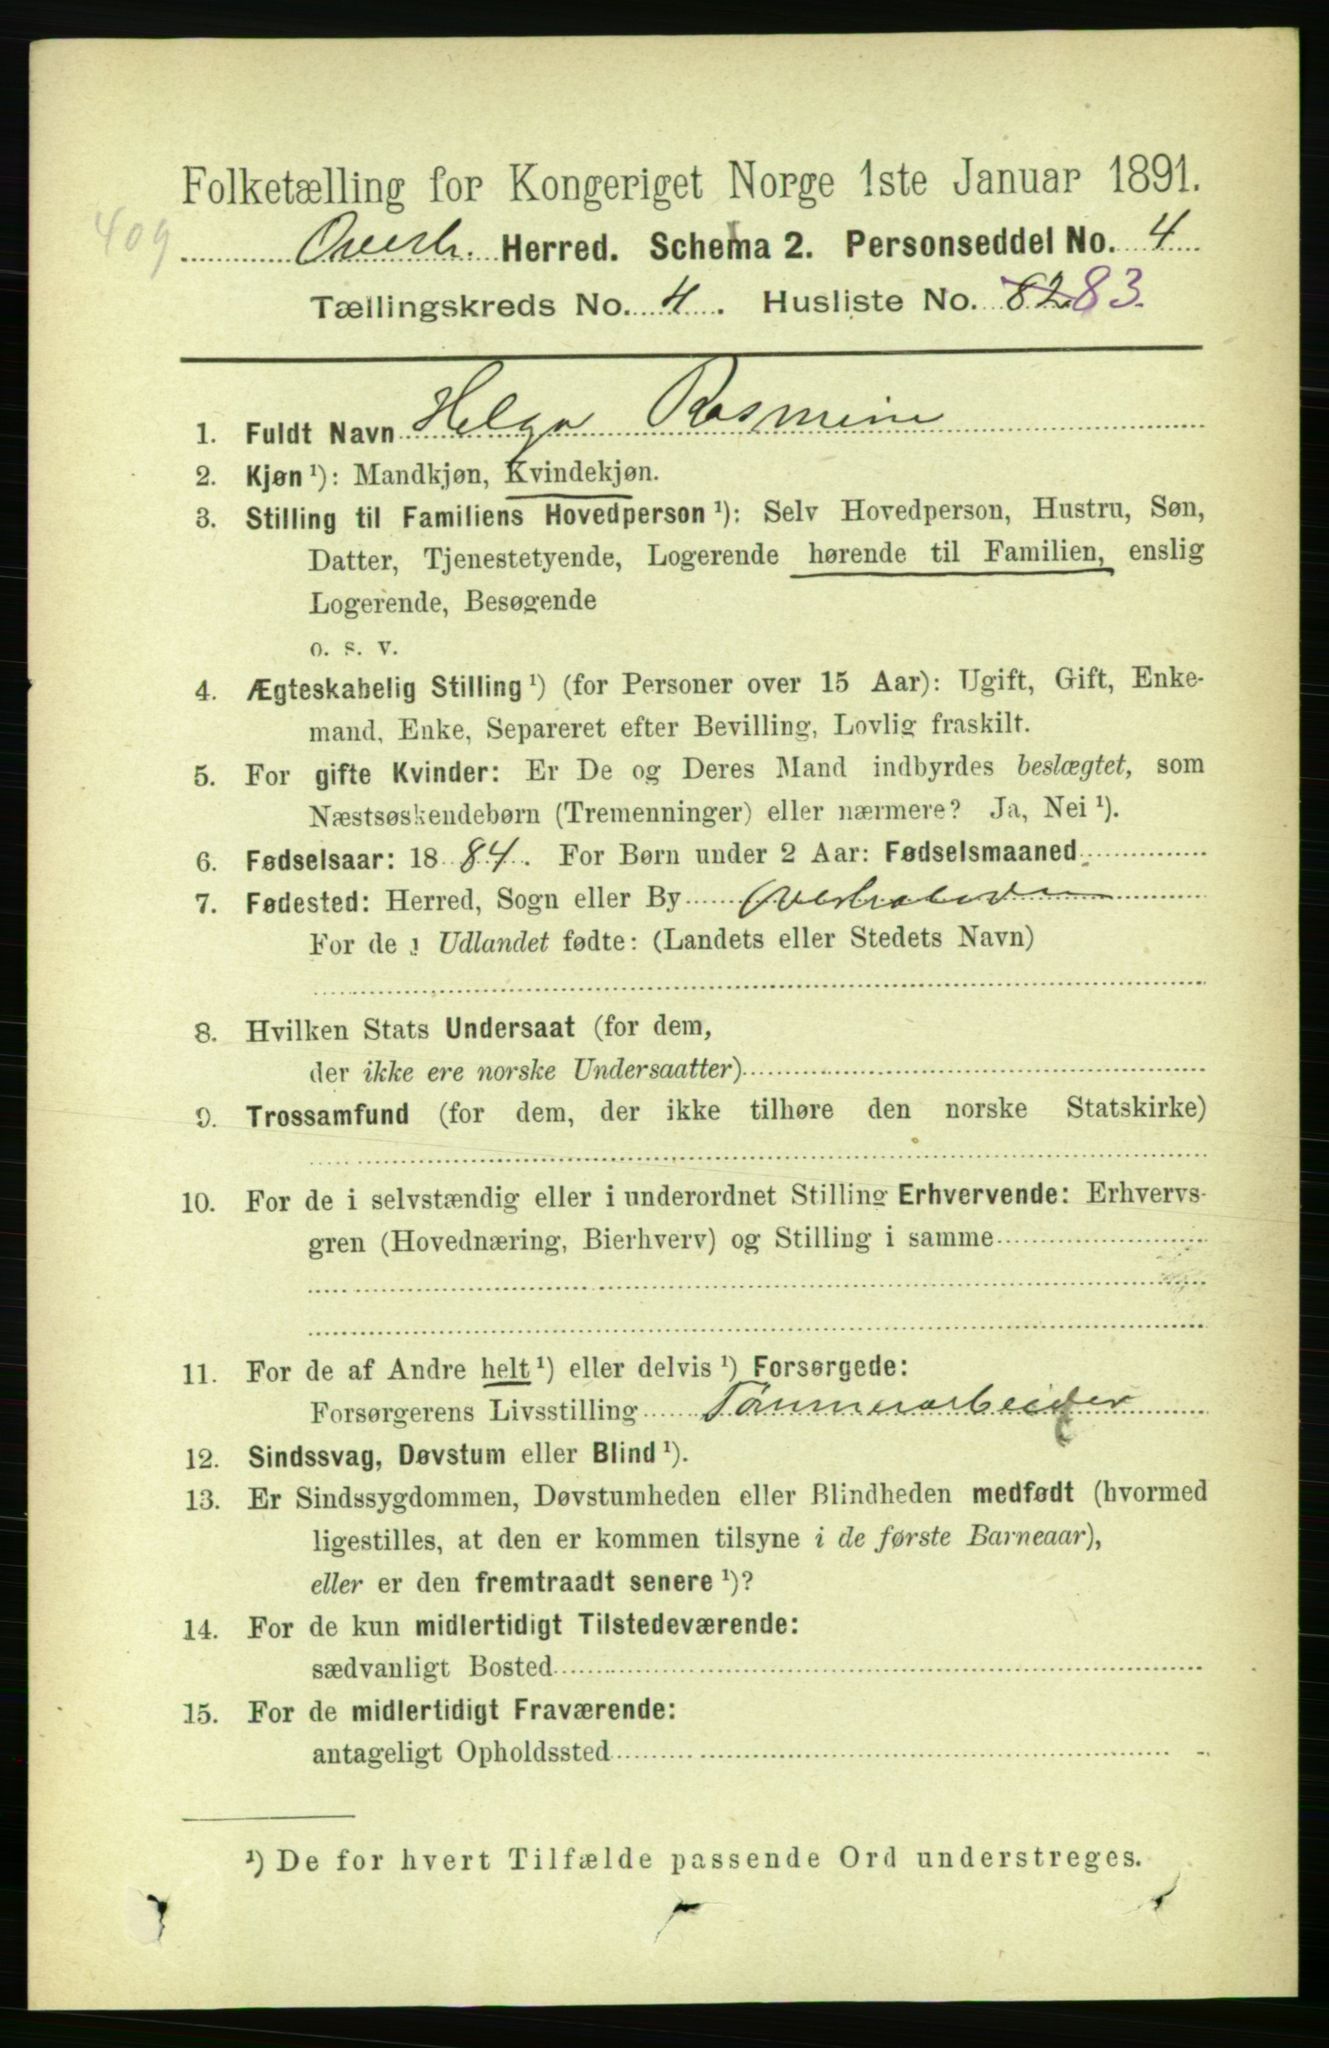 Folketælling for Kongeriget Norge 1ste Januar 1891.
409
Overh. Herred. Schema 2. Personseddel No. 4
Tællingskreds No. 4. Husliste No. 82 83.
1. Fuldt Navn Helga Rasmine
2. Kjøn ¹): Mandkjøn, Kvindekjøn.
3. Stilling til Familiens Hovedperson ¹): Selv Hovedperson, Hustru, Søn,
Datter, Tjenestetyende, Logerende hørende til Familien, enslig
Logerende, Besøgende
o. s. v.
4. Ægteskabelig Stilling ¹) (for Personer over 15 Aar): Ugift, Gift, Enke-
mand, Enke, Separeret efter Bevilling, Lovlig fraskilt.
5. For gifte Kvinder: Er De og Deres Mand indbyrdes beslægtet, som
Næstsøskendebørn (Tremenninger) eller nærmere? Ja, Nei ¹).
6. Fødselsaar: 18 84. For Børn under 2 Aar: Fødselsmaaned
7. Fødested: Herred, Sogn eller By Overhalvden
For de i Udlandet fødte: (Landets eller Stedets Navn)
8. Hvilken Stats Undersaat (for dem,
der ikke ere norske Undersaatter)
9. Trossamfund (for dem, der ikke tilhøre den norske Statskirke)
10. For de i selvstændig eller i underordnet Stilling Erhvervende: Erhvervs-
gren (Hovednæring, Bierhverv) og Stilling i samme
11. For de af Andre helt ¹) eller delvis ¹) Forsørgede:
Forsørgerens Livsstilling Tømmerarbeider
12. Sindssvag, Døvstum eller Blind ¹).
13. Er Sindssygdommen, Døvstumheden eller Blindheden medfødt (hvormed
ligestilles, at den er kommen tilsyne i de første Barneaar),
eller er den fremtraadt senere ¹)?
14. For de kun midlertidigt Tilstedeværende:
sædvanligt Bosted
15. For de midlertidigt Fraværende:
antageligt Opholdssted
¹) De for hvert Tilfælde passende Ord understreges.